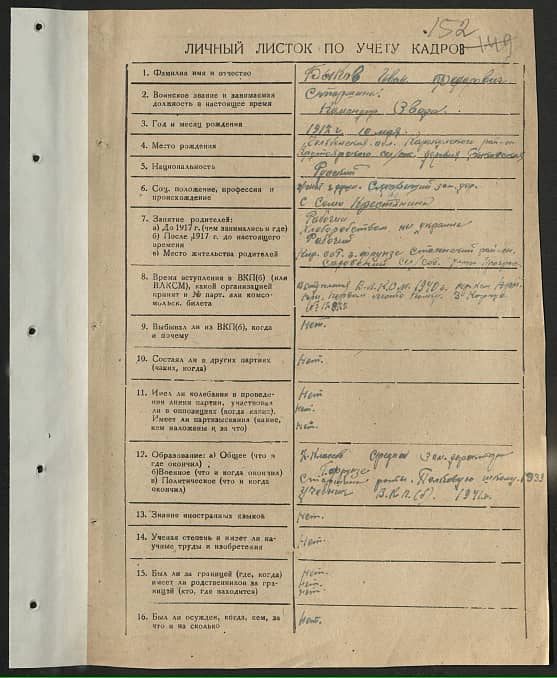 152
149
ЛИЧНЫЙ ЛИСТОК ПО УЧЕТУ КАДРОВ
1. Фамилия имя и отчество
Быков Иван
2. Воинское звание и занимаемая
должность в настоящее время
Старшина.
Командир Взвода.
3. Год и месяц рождения
1917 г. 10 мая.
4. Место рождения
обл. район
деревня
5. Национальность
Русский
6. Соц. положение, профессия и
происхождение
С Семи Крестянина
7. Занятие родителей:
а) До 1917 г. (чем занимались и где)
б) После 1917 г. до настоящего
времени
в) Место жительства родителей
Рабочии
Хлеборобством на украине
Рабочий
Кир. г. фрунзе Сталинский рай-он.
8. Время вступления в ВКП(б) (или
ВЛКСМ), какой организацией
принят и № парт. или комсо-
мольск. билета
1940 г.
9. Выбывал ли из ВКП(б), когда
и почему
Нет.
10. Состоял ли в других партиях
(каких, когда)
Нет.
11. Имел ли колебания в проведе-
нии линии партии, участвовал
ли в оппозициях (когда каких).
Имеет ли партвзыскания (какие,
кем наложены и за что)
Нет
Нет.
Нет.
12. Образование: а) Общее (что и
где окончил)
б) Военное (что и когда окончил)
в) Политическое (что и когда
окончил)
Классов Средная
г. фрунзе
Старшина роты. Полковую школу. 1939
В.К.П.(б).
13. Знание иностранных языков
Нет.
14. Ученая степень и имеет ли на-
учные труды и изобретения
Нет.
15. Был ли за границей (где, когда)
имеет ли родственников за гра-
ницей (кто, где находится)
Нет.
Нет.
Нет
16. Был ли осужден, когда, кем, за
что и на сколько
Нет.